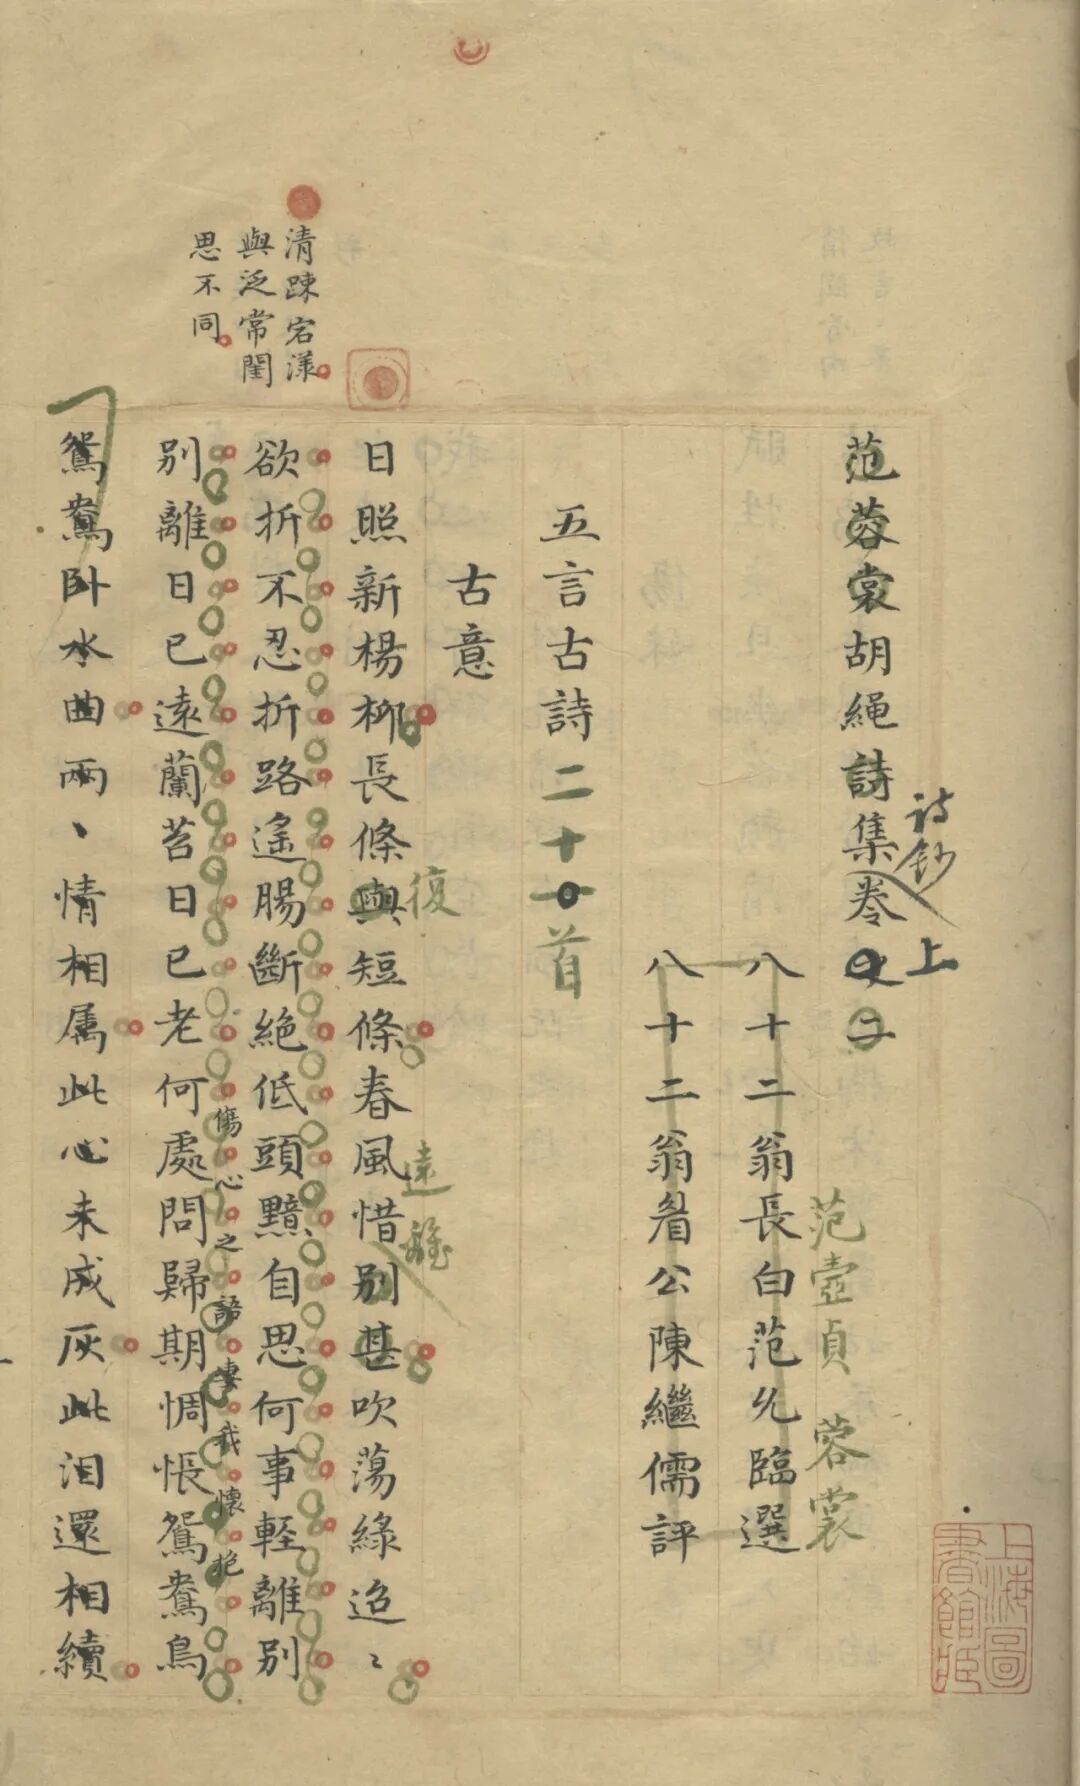 范蓉裳胡繩詩集卷之二
詩鈔
上
八十二翁長白范允臨選
范壺貞 蓉裳
八十二翁眉公陳繼儒評
五言古詩二十首
古意
日照新楊柳長條與短條春風惜別甚吹蕩綠迢〻
復
遠離
欲折不忍折路遙腸斷絕低頭黯自思何事軽離別
別離日已遠蘭苕日已老何處問歸期惆悵鴛鴦鳥
傷心之語妻我懷抱
鴛鴦卧水曲兩〻情相属此心未成灰此泪還相續
清踈宕漾
與泛常閨
思不同
上海圖
書館臧